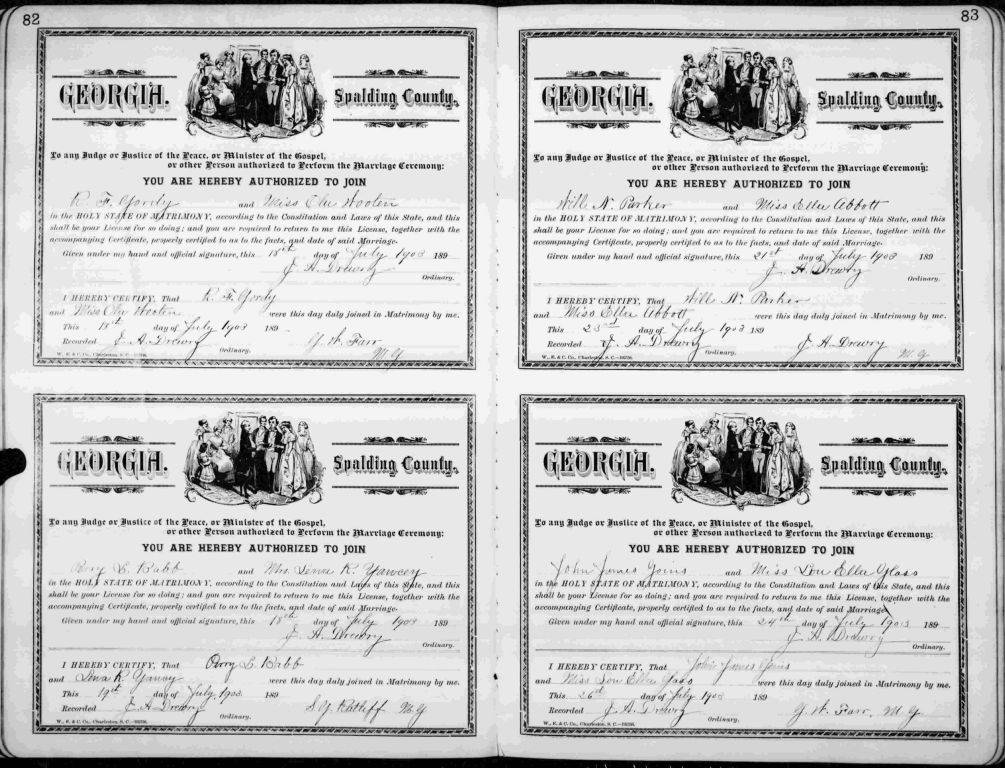 82
GEORGIA. Spalding County.
To any Judge or Justice of the Peace, or Minister of the Gospel,
or other Person authorized to Perform the Marriage Ceremony:
YOU ARE HEREBY AUTHORIZED TO JOIN
R. F. Gordy and Miss Wooten
in the HOLY STATE OF MATRIMONY, according to the Constitution and Laws of this State, and this
shall be your License for so doing; and you are required to return to me this License, together with the
accompanying Certificate, properly certified to as to the facts, and date of said Marriage.
Given under my hand and official signature, this 18th day of July 1903 189
J. A. Drewry
Ordinary.
I HEREBY CERTIFY, That R. F. Gordy
and Miss Wooten were this day duly joined in Matrimony by me.
This 18th day of July 1903 189
Recorded J. A. Drewry W. Farr
Ordinary. M G
W., E. & C. Co., Charleston, S. C.
GEORGIA. Spalding County.
To any Judge or Justice of the Peace, or Minister of the Gospel,
or other Person authorized to Perform the Marriage Ceremony:
YOU ARE HEREBY AUTHORIZED TO JOIN
L. Babb and Mrs. Lena R. Yancey
in the HOLY STATE OF MATRIMONY, according to the Constitution and Laws of this State, and this
shall be your License for so doing; and you are required to return to me this License, together with the
accompanying Certificate, properly certified to as to the facts, and date of said Marriage.
Given under my hand and official signature, this 18th day of July 1903 189
J. A. Drewry
Ordinary.
I HEREBY CERTIFY, That L. Babb
and Lena R. Yancy were this day duly joined in Matrimony by me.
This 19th day of July 1903 189
Recorded J. A. Drewry Ratliff M G
Ordinary.
W., E. & C. Co., Charleston, S. C.
83
GEORGIA. Spalding County.
To any Judge or Justice of the Peace, or Minister of the Gospel,
or other Person authorized to Perform the Marriage Ceremony:
YOU ARE HEREBY AUTHORIZED TO JOIN
Will N. Parker and Miss Ella Abbott
in the HOLY STATE OF MATRIMONY, according to the Constitution and Laws of this State, and this
shall be your License for so doing; and you are required to return to me this License, together with the
accompanying Certificate, properly certified to as to the facts, and date of said Marriage.
Given under my hand and official signature, this 21st day of July 1903 189
J. A. Drewry
Ordinary.
I HEREBY CERTIFY, That Will N. Parker
and Miss Ella Abbott were this day duly joined in Matrimony by me.
This 23rd day of July 1903 189
Recorded J. A. Drewry J. A. Drewry
Ordinary. M G
W., E. & C. Co., Charleston, S. C.
GEORGIA. Spalding County.
To any Judge or Justice of the Peace, or Minister of the Gospel,
or other Person authorized to Perform the Marriage Ceremony:
YOU ARE HEREBY AUTHORIZED TO JOIN
John James Goins and Miss Lou Ella Glass
in the HOLY STATE OF MATRIMONY, according to the Constitution and Laws of this State, and this
shall be your License for so doing; and you are required to return to me this License, together with the
accompanying Certificate, properly certified to as to the facts, and date of said Marriage.
Given under my hand and official signature, this 24th day of July 1903 189
J. A. Drewry
Ordinary.
I HEREBY CERTIFY, That John James Goins
and Miss Lou Ella Glass were this day duly joined in Matrimony by me.
This 26th day of July 1903 189
Recorded J. A. Drewry W. Farr, M G
Ordinary.
W., E. & C. Co., Charleston, S. C.